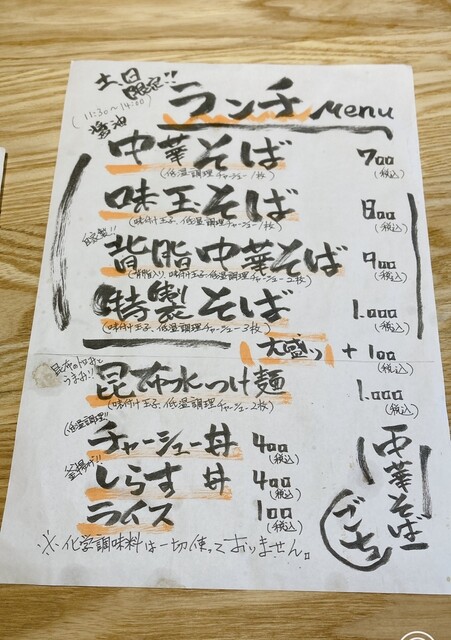 土日限定!!
(11:30〜14:00)
ランチ Menu
醤油
中華そば 700
(低温調理チャーシュー1枚) (税込)
味玉そば 800
(味付け玉子、低温調理チャーシュー1枚) (税込)
背脂中華そば 900
(背脂入り、味付け玉子、低温調理チャーシュー2枚) (税込)
特製そば 1.000
(味付け玉子、低温調理チャーシュー3枚) (税込)
大盛り +100
(税込)
昆布のうまみとうまみ!!
昆布水つけ麺 1.000
(味付け玉子、低温調理チャーシュー2枚) (税込)
(低温調理)
チャーシュー丼 400
(税込)
釜揚げ!!
しらす丼 400
(税込)
ライス 100
(税込)
中華そば
ごとう
※化学調味料は一切使っておりません。